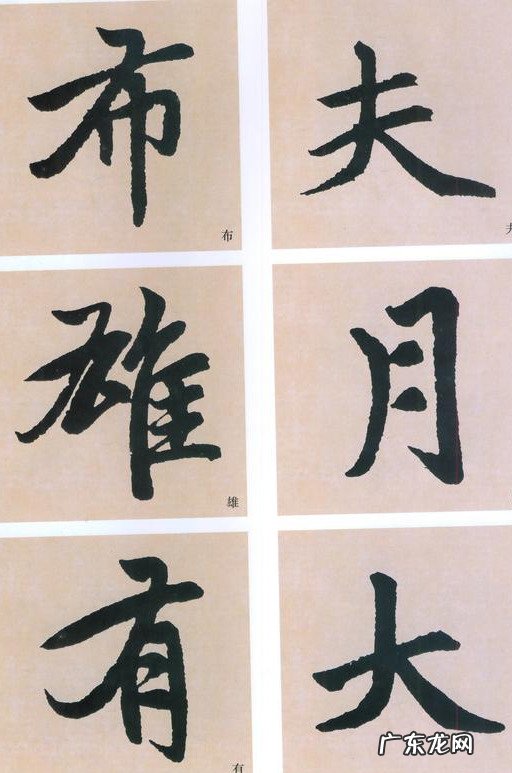 布 夫
布 夫
雄 月
雄
有 大
有
广东龙网